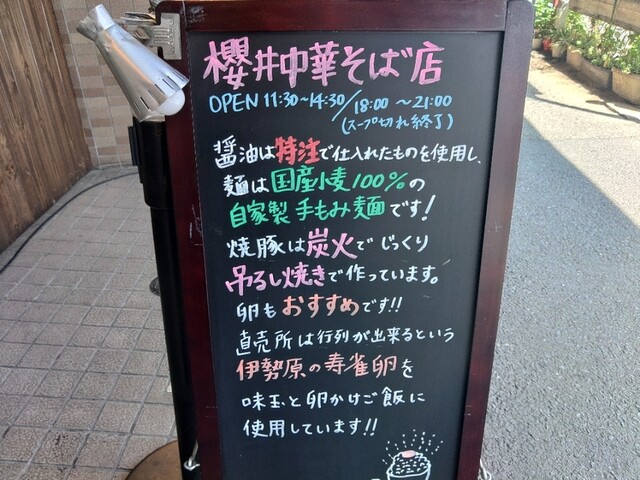 櫻井中華そば店
OPEN 11:30~14:30/18:00~21:00
(スープ切れ終了)
醤油は特注で仕入れたものを使用し、
麺は国産小麦100%の
自家製手もみ麺です!
焼豚は炭火でじっくり
吊るし焼きで作っています。
卵もおすすめです!!
直売所は行列が出来るという
伊勢原の寿雀卵を
味玉と卵かけご飯に
使用しています!!